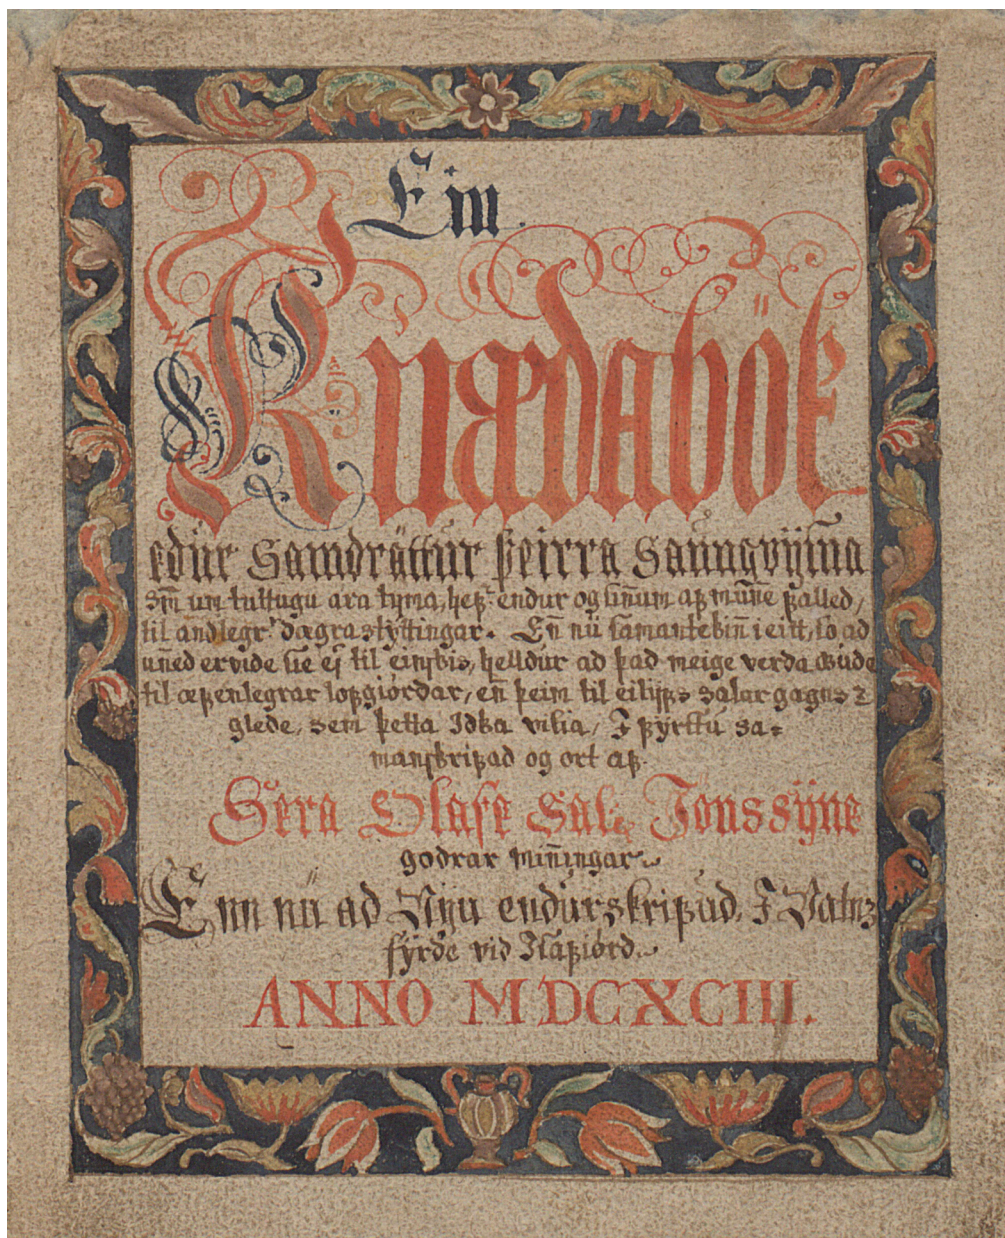 Ein
Kuædabök
edur Samdráttur þeirra Saungvÿsna
Sm̃ um tuttugu ara tÿma, hefr endur og sin̄um af mun̄e falled,
til andlegr dægrastÿttingar. En̄ nü samanteken̄ i eitt, so ad
un̄ed ervide sie ej til einskis, helldur ad þad meige verda bæde
til æfenlegrar lofgiördar, en̄ þeim til eilÿfs Salar gagns &
glede, sem þetta Idka vilia, I fÿrstu sa-
manskrifad og ort af.
Séra Olafe Sal: Jonssÿne
godrar min̄ingar
Enn nü ad Nÿu endurskrifud, I Vatnz
fÿrde vid Isafiörd
ANNO MDCXCIII.